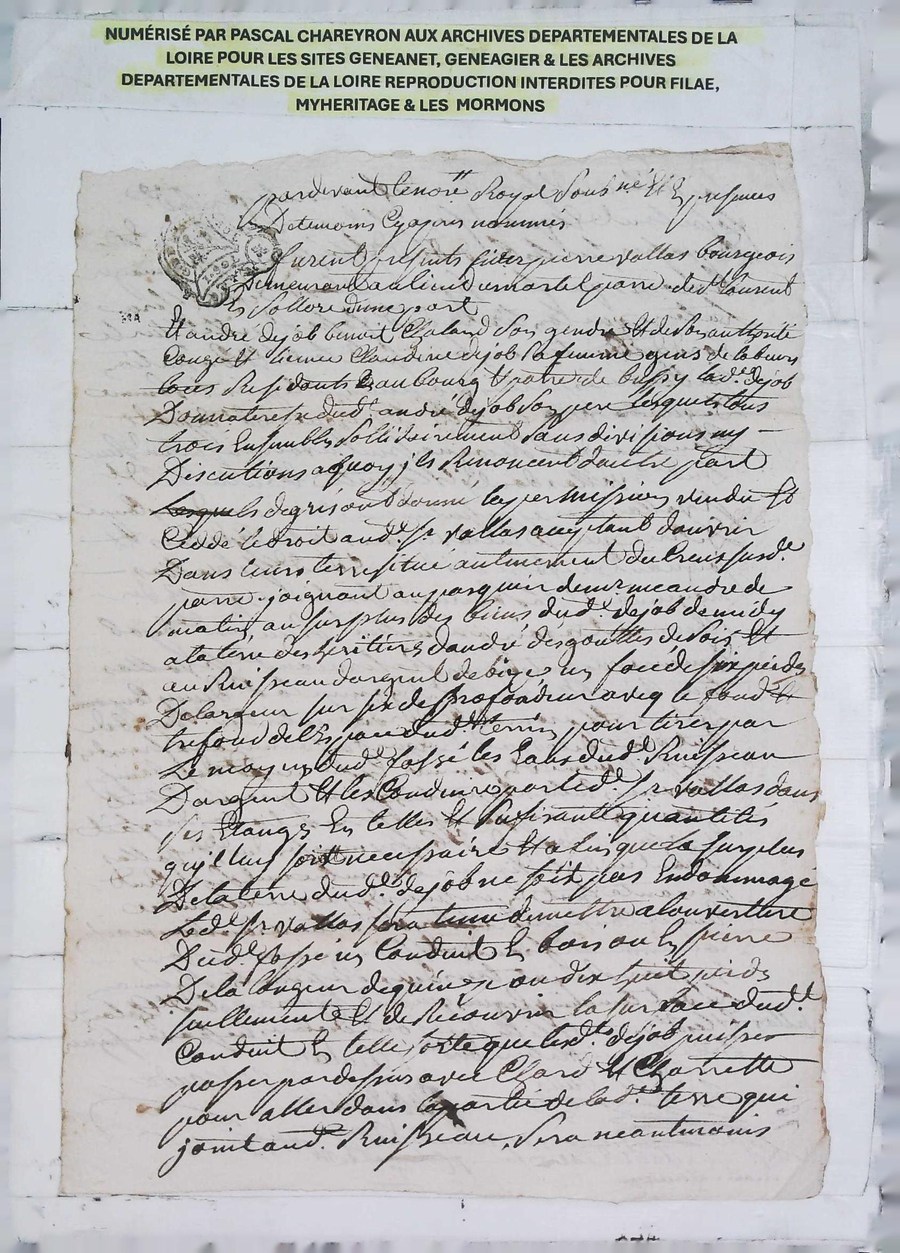 NUMÉRISÉ PAR PASCAL CHAREYRON AUX ARCHIVES DEPARTEMENTALES DE LA
LOIRE POUR LES SITES GENEANET, GENEAGIER & LES ARCHIVES
DEPARTEMENTALES DE LA LOIRE REPRODUCTION INTERDITES POUR FILAE,
MYHERITAGE & LES MORMONS
pardevant le no.re Royal Soussigné Et presences
De temoins Cy apres nommés
furent presents pierre vallas bourgeois
Demeurant au lieu du martel parre. de St Laurent
En Sollore d'une part
Et andré dejob benoit Chaland Son gendre Et de Son authorité
Congé Et licence Claudine dejob Sa femme gens de labeurs
tous Residants au bourg Et parre. de bussy lad.e dejob
Donnatere dud.t andré dejob Son pere Lesquels tous
trois Ensembles Sollidairement Sans divisions ny
Discutions a quoy jls Renoncent d'autre part
Lesquels de gré ont donné la permission vendu Et
Ceddé le droit aud.t Sr vallas acceptant d'ouvrir
Dans leurs terre Situé au tinement du Creux Susd.e
parre. joignant au pasquier de
matin au Surplus des biens dud.t dejob de midy
a la terre des heritiers d'andré desgouttes de Soir Et
au Ruisseau d'argent de bize un fossé de Six pieds
De largeur Sur Six de profondeur aveq le fond Et
trefond de l'Espace dud.t terrin pour tirer par
Le moyen dud.t fossé les Eaux dud.t Ruisseau
D'argent Et les Conduire par led.t Sr vallas dans
Ses Etangs En telles Et Suffisante quantités
qu'il luy Soit necessaire Et a lin que le Surplus
De la terre dud.t dejob ne Soit pas Endommagé
Led.t Sr vallas Sera tenu de mettre a l'ouverture
Dud.t fossé un Conduit En bois ou En pierre
De la longeur de quinze ou dix huit pieds
Seullement Et de Recouvrir la Surface dud.t
Conduit En telle Sorte que led.t dejob puisse
passer par dessus avec Chard Et Charrette
pour aller dans la partie de lad.e terre qui
joint aud.t Ruisseau, Sera neantmoins